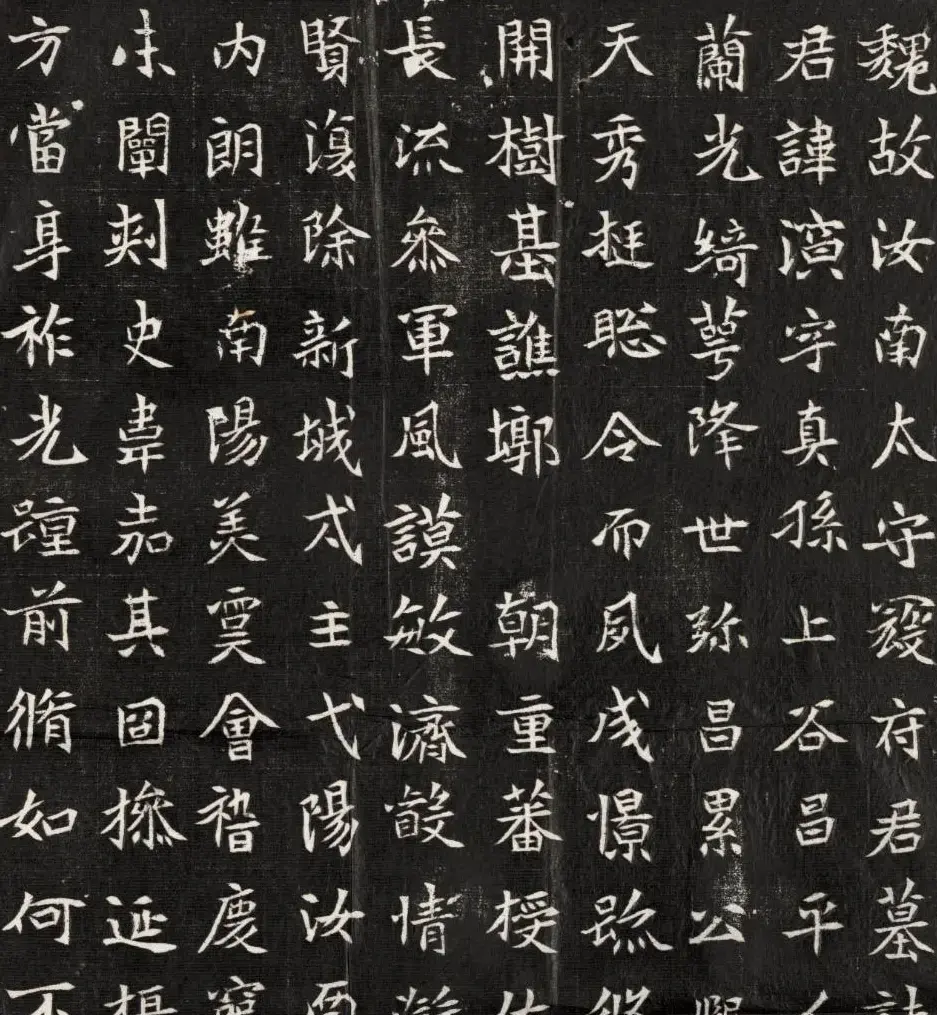 魏故汝南太守寇府君墓誌
君諱演字真孫上谷昌平人
蘭光綺萼降世弥昌累公熙
天秀挺聡令而夙成憬踈
開樹基譙墎 朝重蕃授佐
長流參軍風謨敏濟散情
賢復除新城弍主弋陽汝
内朗雖南陽羙會慶
未闡刾史韋嘉其固操延
方當身祚光踵前脩如何不